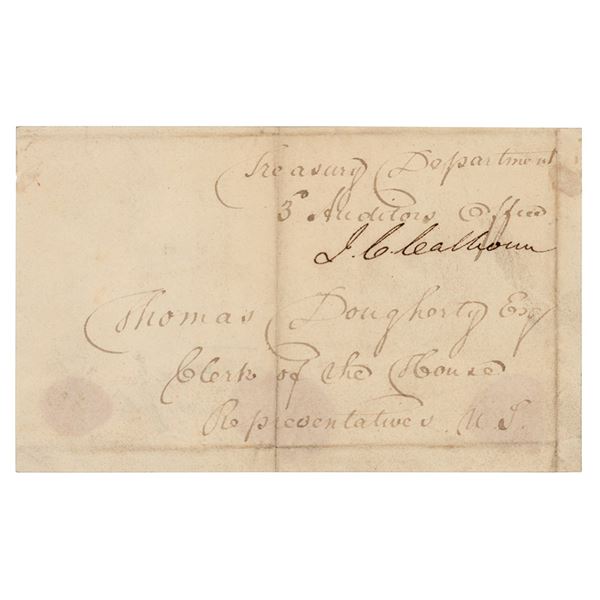 Treasury Department
3d Auditors Office
J. C. Calhoun
Thomas Dougherty Esq
Clerk of the House
Representatives U. S.